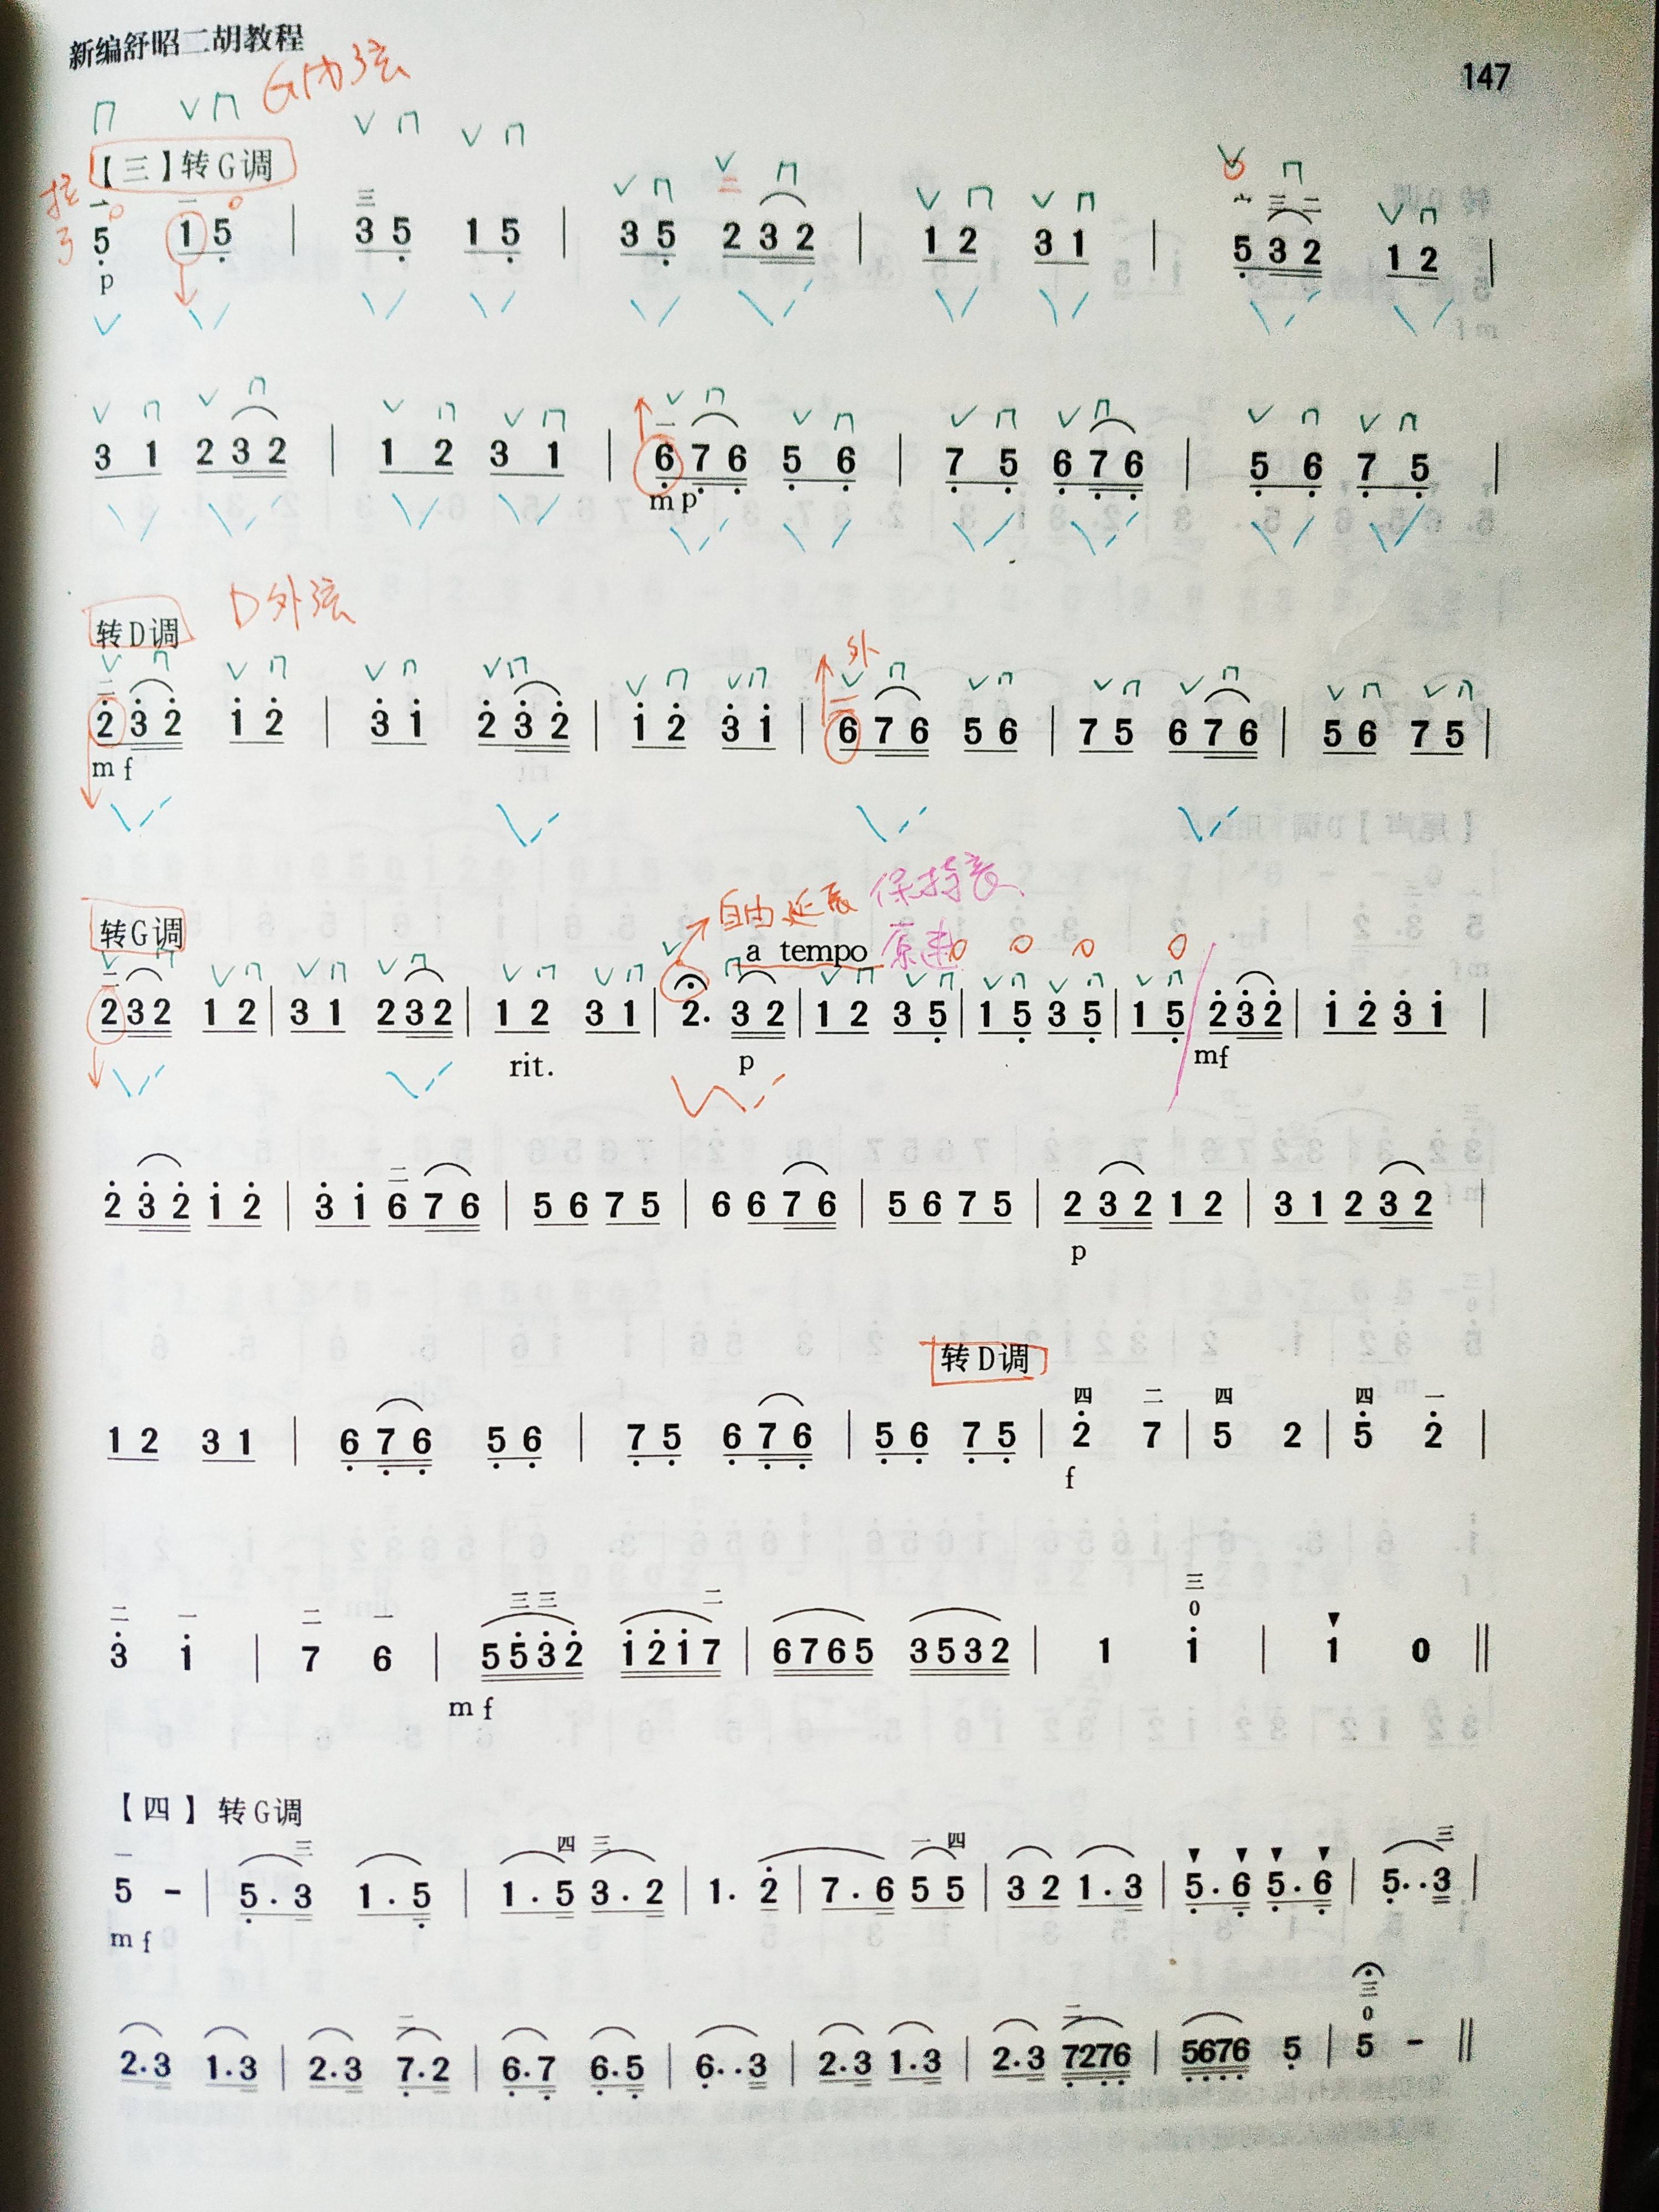 新编舒昭二胡教程
147
G内弦
【三】转G调
5 1 5 | 3 5 1 5 | 3 5 2 3 2 | 1 2 3 1 | 5 3 2 1 2 |
p
3 1 2 3 2 | 1 2 3 1 | 6 7 6 5 6 | 7 5 6 7 6 | 5 6 7 5 |
mp
转D调 D外弦
外
2 3 2 1 2 | 3 1 2 3 2 | 1 2 3 1 | 6 7 6 5 6 | 7 5 6 7 6 | 5 6 7 5 |
mf
自由延长 保持音
转G调 a tempo 原速
2 3 2 1 2 | 3 1 2 3 2 | 1 2 3 1 | 2. 3 2 | 1 2 3 5 | 1 5 3 5 | 1 5 2 3 2 | 1 2 3 1 |
rit. p mf
2 3 2 1 2 | 3 1 6 7 6 | 5 6 7 5 | 6 6 7 6 | 5 6 7 5 | 2 3 2 1 2 | 3 1 2 3 2 |
p
转D调
四 二 四 四 一
1 2 3 1 | 6 7 6 5 6 | 7 5 6 7 6 | 5 6 7 5 | 2 7 | 5 2 | 5 2 |
f
二 一 二 一 三 三 二 三 0
3 1 | 7 6 | 5 5 3 2 1 2 1 7 | 6 7 6 5 3 5 3 2 | 1 1 | 1 0 ||
mf
【四】转G调
一 三 四 三 一 四 三
5 - | 5 . 3 1 . 5 | 1 . 5 3 . 2 | 1 . 2 | 7 . 6 5 5 | 3 2 1 . 3 | 5 . 6 5 . 6 | 5 . . 3 |
mf
二 二 三 0
2 . 3 1 . 3 | 2 . 3 7 . 2 | 6 . 7 6 . 5 | 6 . . 3 | 2 . 3 1 . 3 | 2 . 3 7 2 7 6 | 5 6 7 6 5 | 5 - ||